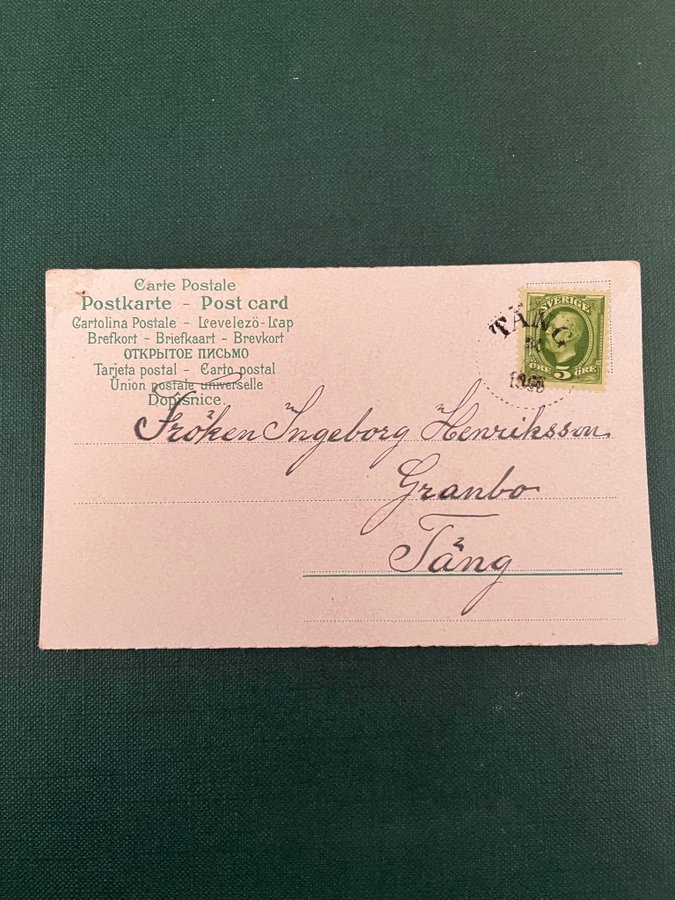 Carte Postale
Postkarte - Post card
Cartolina Postale - Levelezö-Lap
Brefkort - Briefkaart - Brevkort
ОТКРЫТОЕ ПИСЬМО
Tarjeta postal - Carto postal
Union postale universelle
Dopisnice.
SVERIGE
TÄNG
ÖRE 5 ÖRE
Fröken Ingeborg Henriksson.
Granbo
Täng